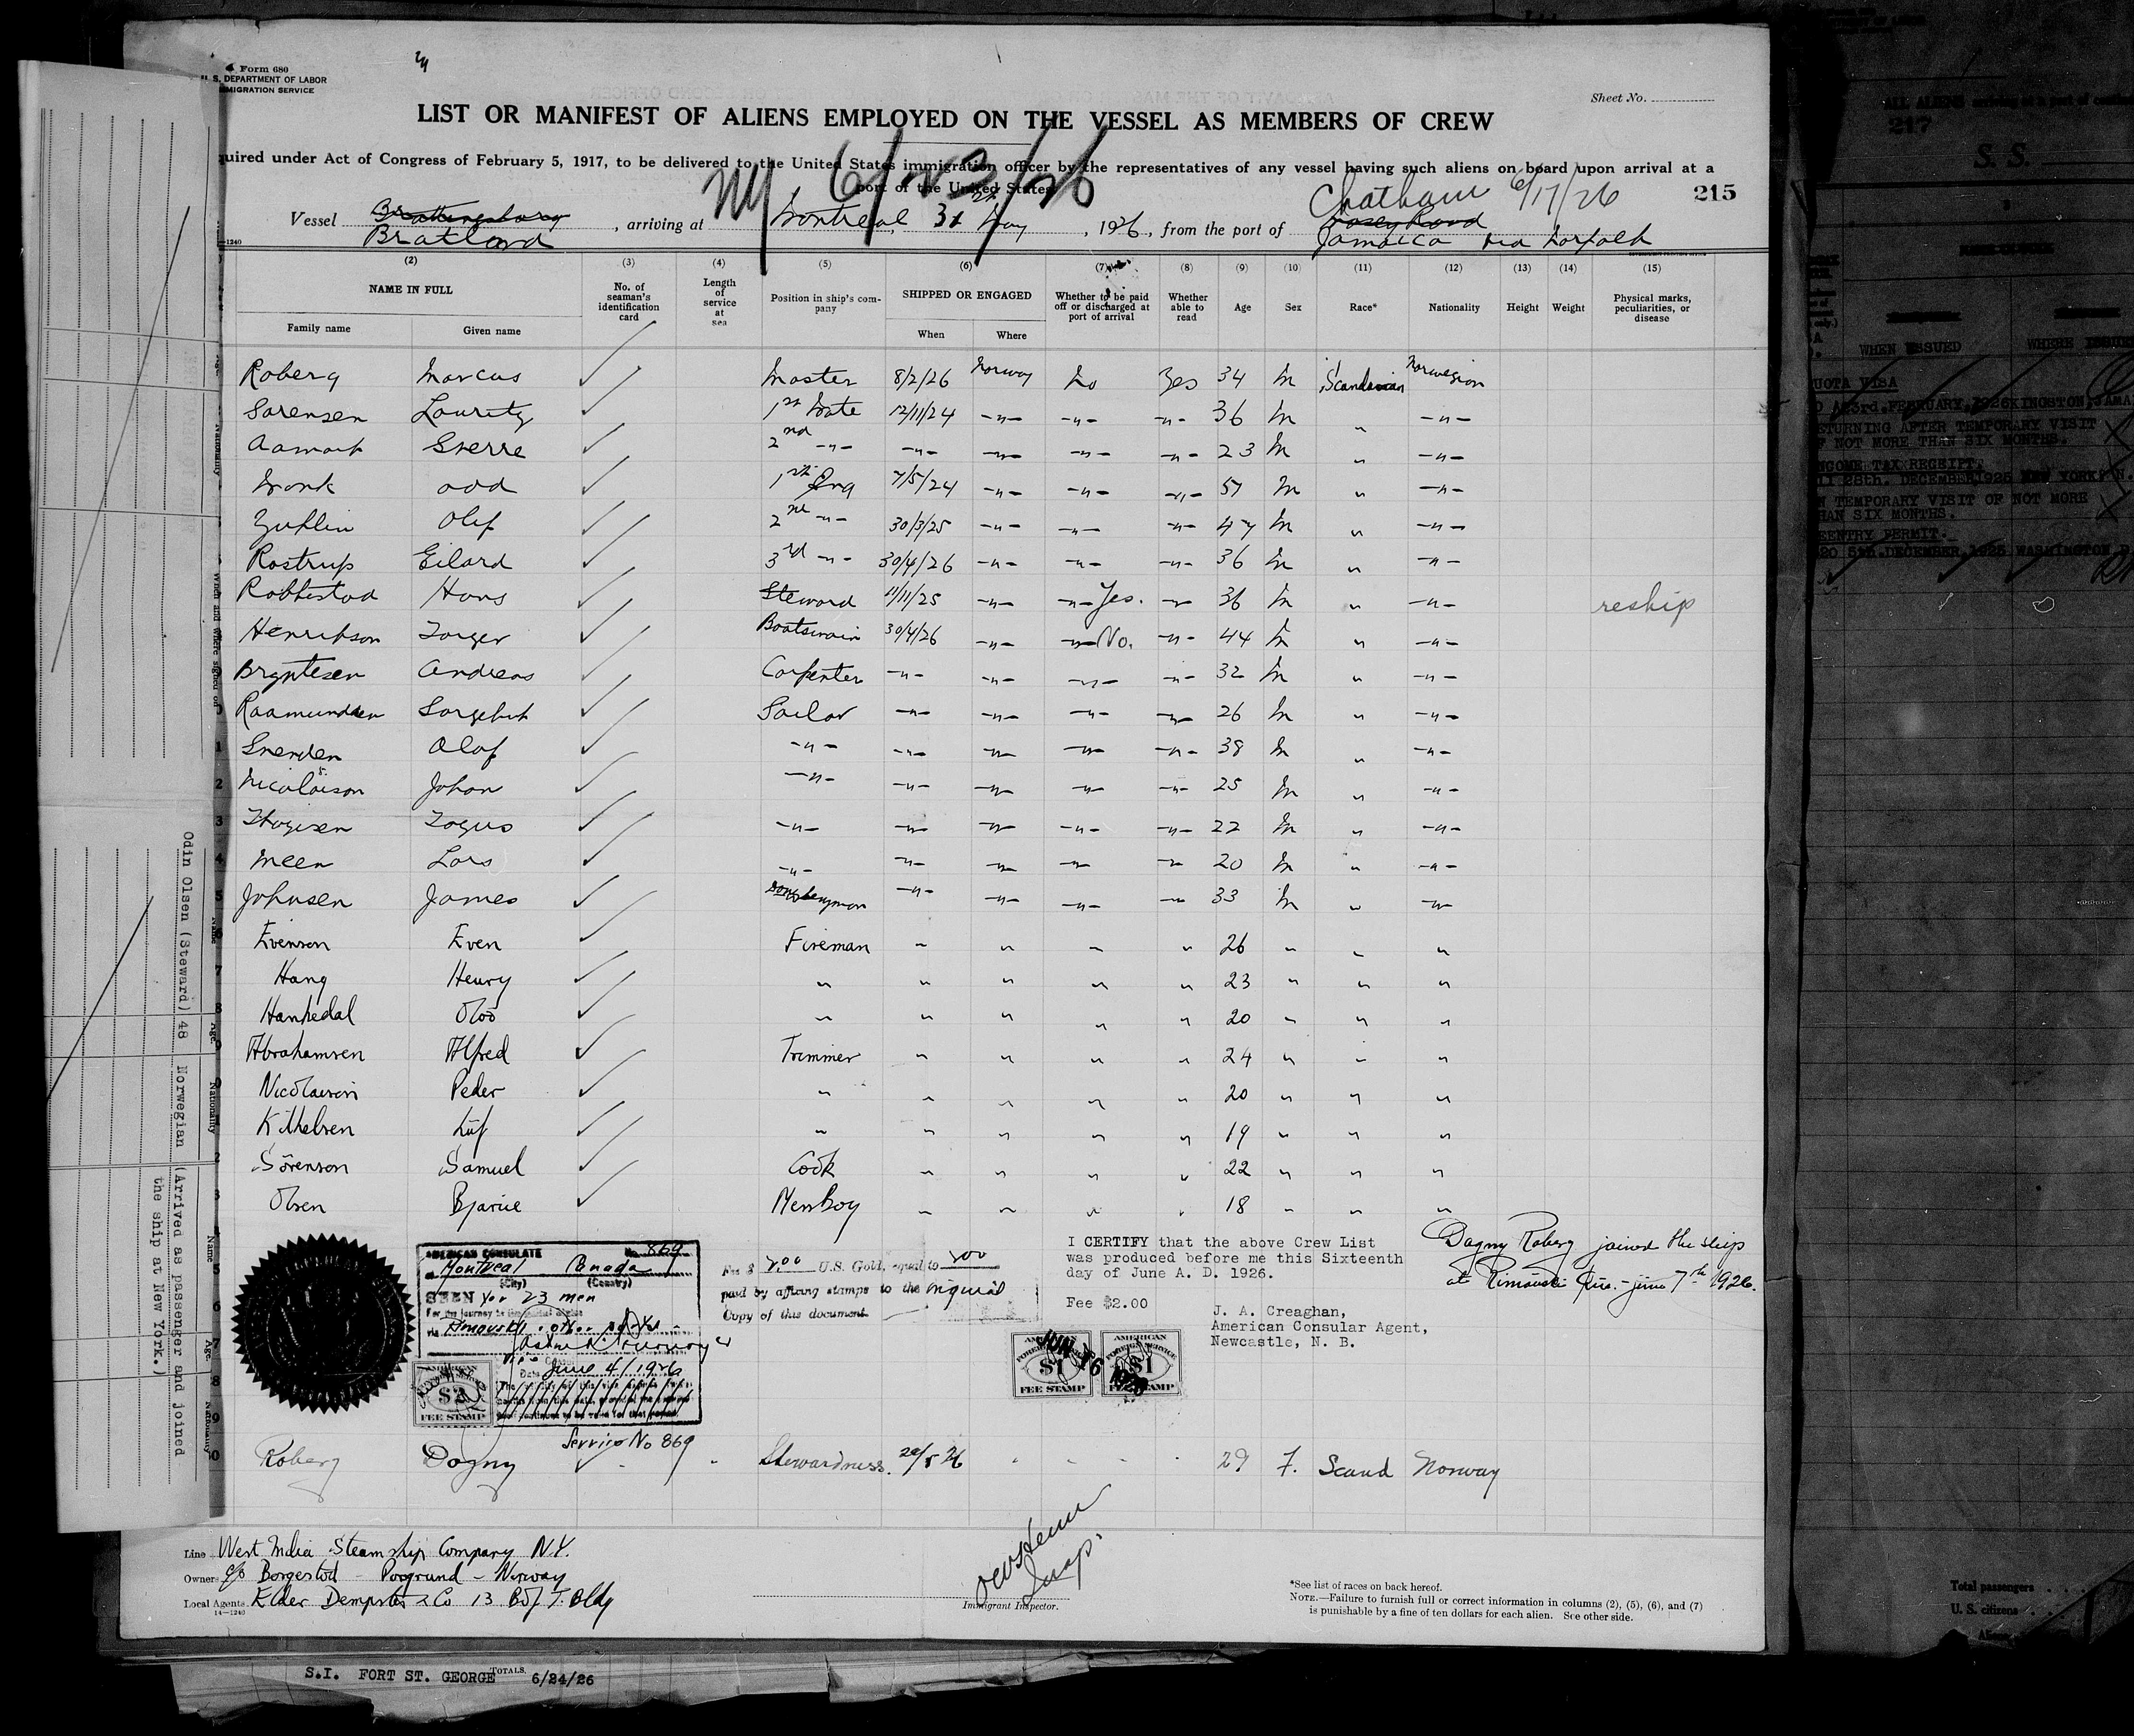 Form 680
U. S. DEPARTMENT OF LABOR
IMMIGRATION SERVICE
Sheet No.
LIST OR MANIFEST OF ALIENS EMPLOYED ON THE VESSEL AS MEMBERS OF CREW
uired under Act of Congress of February 5, 1917, to be delivered to the United States immigration officer by the representatives of any vessel having such aliens on board upon arrival at a
port of the United States
NY 6/23/26
Chatham 6/17/26
215
Vessel Bratland, arriving at Montreal 31 May, 1926, from the port of Jamaica via Norfolk
(2) (3) (4) (5) (6) (7) (8) (9) (10) (11) (12) (13) (14) (15)
NAME IN FULL No. of seaman's identification card Length of service at sea Position in ship's company SHIPPED OR ENGAGED Whether to be paid off or discharged at port of arrival Whether able to read Age Sex Race* Nationality Height Weight Physical marks, peculiarities, or disease
Family name Given name When Where
Roberg Marcus Master 8/2/26 Norway No Yes 34 M Scandinavian Norwegian
Sorensen Lauritz 1st Mate 12/11/24 -"- -"- -"- 36 M " -"-
Aamodt Sverre 2nd -"- -"- -"- -"- -"- 23 M " -"-
Odd 1st Eng 7/5/24 -"- -"- -"- 57 M " -"-
Olef 2nd -"- 30/3/25 -"- -"- -"- 47 M " -"-
Rostrup Eilard 3rd -"- 30/4/26 -"- -"- -"- 36 M " -"-
Hans Steward 11/11/25 -"- -"- Yes. -"- 36 M " -"- reship
Henrikson Torger Boatswain 30/4/26 -"- -"- No. -"- 44 M " -"-
Bryntesen Andreas Carpenter -"- -"- -"- -"- 32 M " -"-
Raamundsen Sailor -"- -"- -"- -"- 26 M " -"-
Olaf -"- -"- -"- -"- -"- 38 M " -"-
Nicolaison Johan -"- -"- -"- -"- -"- 25 M " -"-
-"- -"- -"- -"- -"- 22 M " -"-
Meen Lars -"- -"- -"- -"- -"- 20 M " -"-
Johnsen James Donkeyman -"- -"- -"- -"- 33 M " -"-
Evenson Even Fireman " " " " 26 " " "
Hang Henry " " " " " 23 " " "
Hankedal " " " " " 20 " " "
Abrahamsen Alfred Trimmer " " " " 24 " " "
Nicolaison Peder " " " " " 20 " " "
Kittelsen Leif " " " " " 19 " " "
Sörenson Samuel Cook " " " " 22 " " "
Olsen Bjarne Messboy " " " " 18 " " "
AMERICAN CONSULATE No. 869
at Montreal Canada
(City) (Country)
SEEN for 23 men
For the journey to the United States
via Rimouski & other ports
Vice Consul
Date June 4/1926
$2
FEE STAMP
Service No 869
Fee $ 2.00 U.S. Gold, equal to 200
paid by affixing stamps to the original
Copy of this document.
I CERTIFY that the above Crew List
was produced before me this Sixteenth
day of June A. D. 1926.
Fee $2.00
J. A. Creaghan,
American Consular Agent,
Newcastle, N. B.
AMERICAN FOREIGN SERVICE $1 FEE STAMP
AMERICAN FOREIGN SERVICE $1 FEE STAMP
JUN 16 1926
Dagny Roberg joined the ship
at Rimouski Que. - June 7th 1926.
Roberg Dagny Stewardness. 29/5 26 29 F. Scand Norway
Line West India Steamship Company N.Y.
Owners c/o Borgestad - Porsgrund - Norway
Local Agents Elder Dempster & Co 13 Bd/T. Bldg
14—1240
Insp.
Immigrant Inspector.
*See list of races on back hereof.
NOTE.—Failure to furnish full or correct information in columns (2), (5), (6), and (7)
is punishable by a fine of ten dollars for each alien. See other side.
Odin Olsen (Steward) 48 Norwegian (Arrived as passenger and joined
the ship at New York.)
Name
Age
Nationality
Name
Age
Nationality
S.I. FORT ST. GEORGE TOTALS 6/24/26
ALL ALIENS
217
S. S.
WHEN ISSUED WHERE ISSUED
UOTA VISA
23rd. FEBRUARY, 1926 KINGSTON, JAMA
ETURNING AFTER TEMPORARY VISIT
F NOT MORE THAN SIX MONTHS.
NCOME TAX RECEIPT.
28th. DECEMBER 1925 NEW YORK, N.
N TEMPORARY VISIT OF NOT MORE
HAN SIX MONTHS.
EENTRY PERMIT.
5th. DECEMBER, 1925 WASHINGTON
Total passengers
U. S. citizens